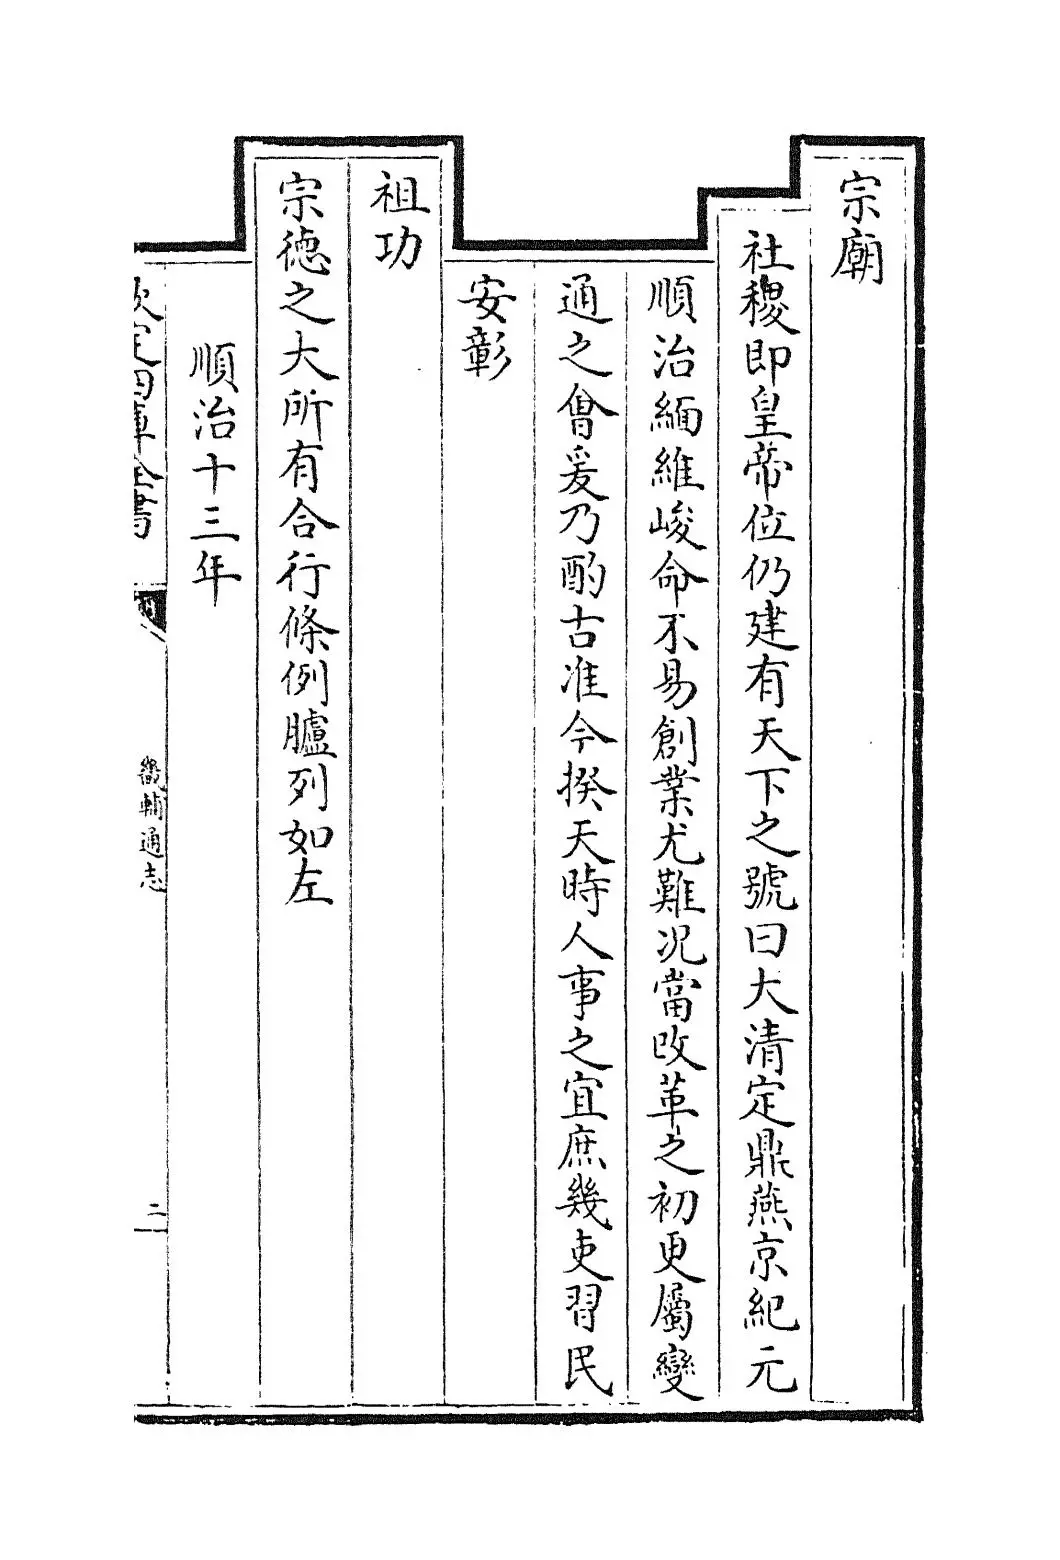 宗廟
社稷即皇帝位仍建有天下之號曰大清定鼎燕京紀元
順治緬維峻命不易創業尤難况當改革之初更屬變
通之會爰乃酌古准今揆天時人事之宜庶幾吏習民
安彰
祖功
宗徳之大所有合行條例臚列如左
順治十三年
欽定四庫全書
畿輔通志
二